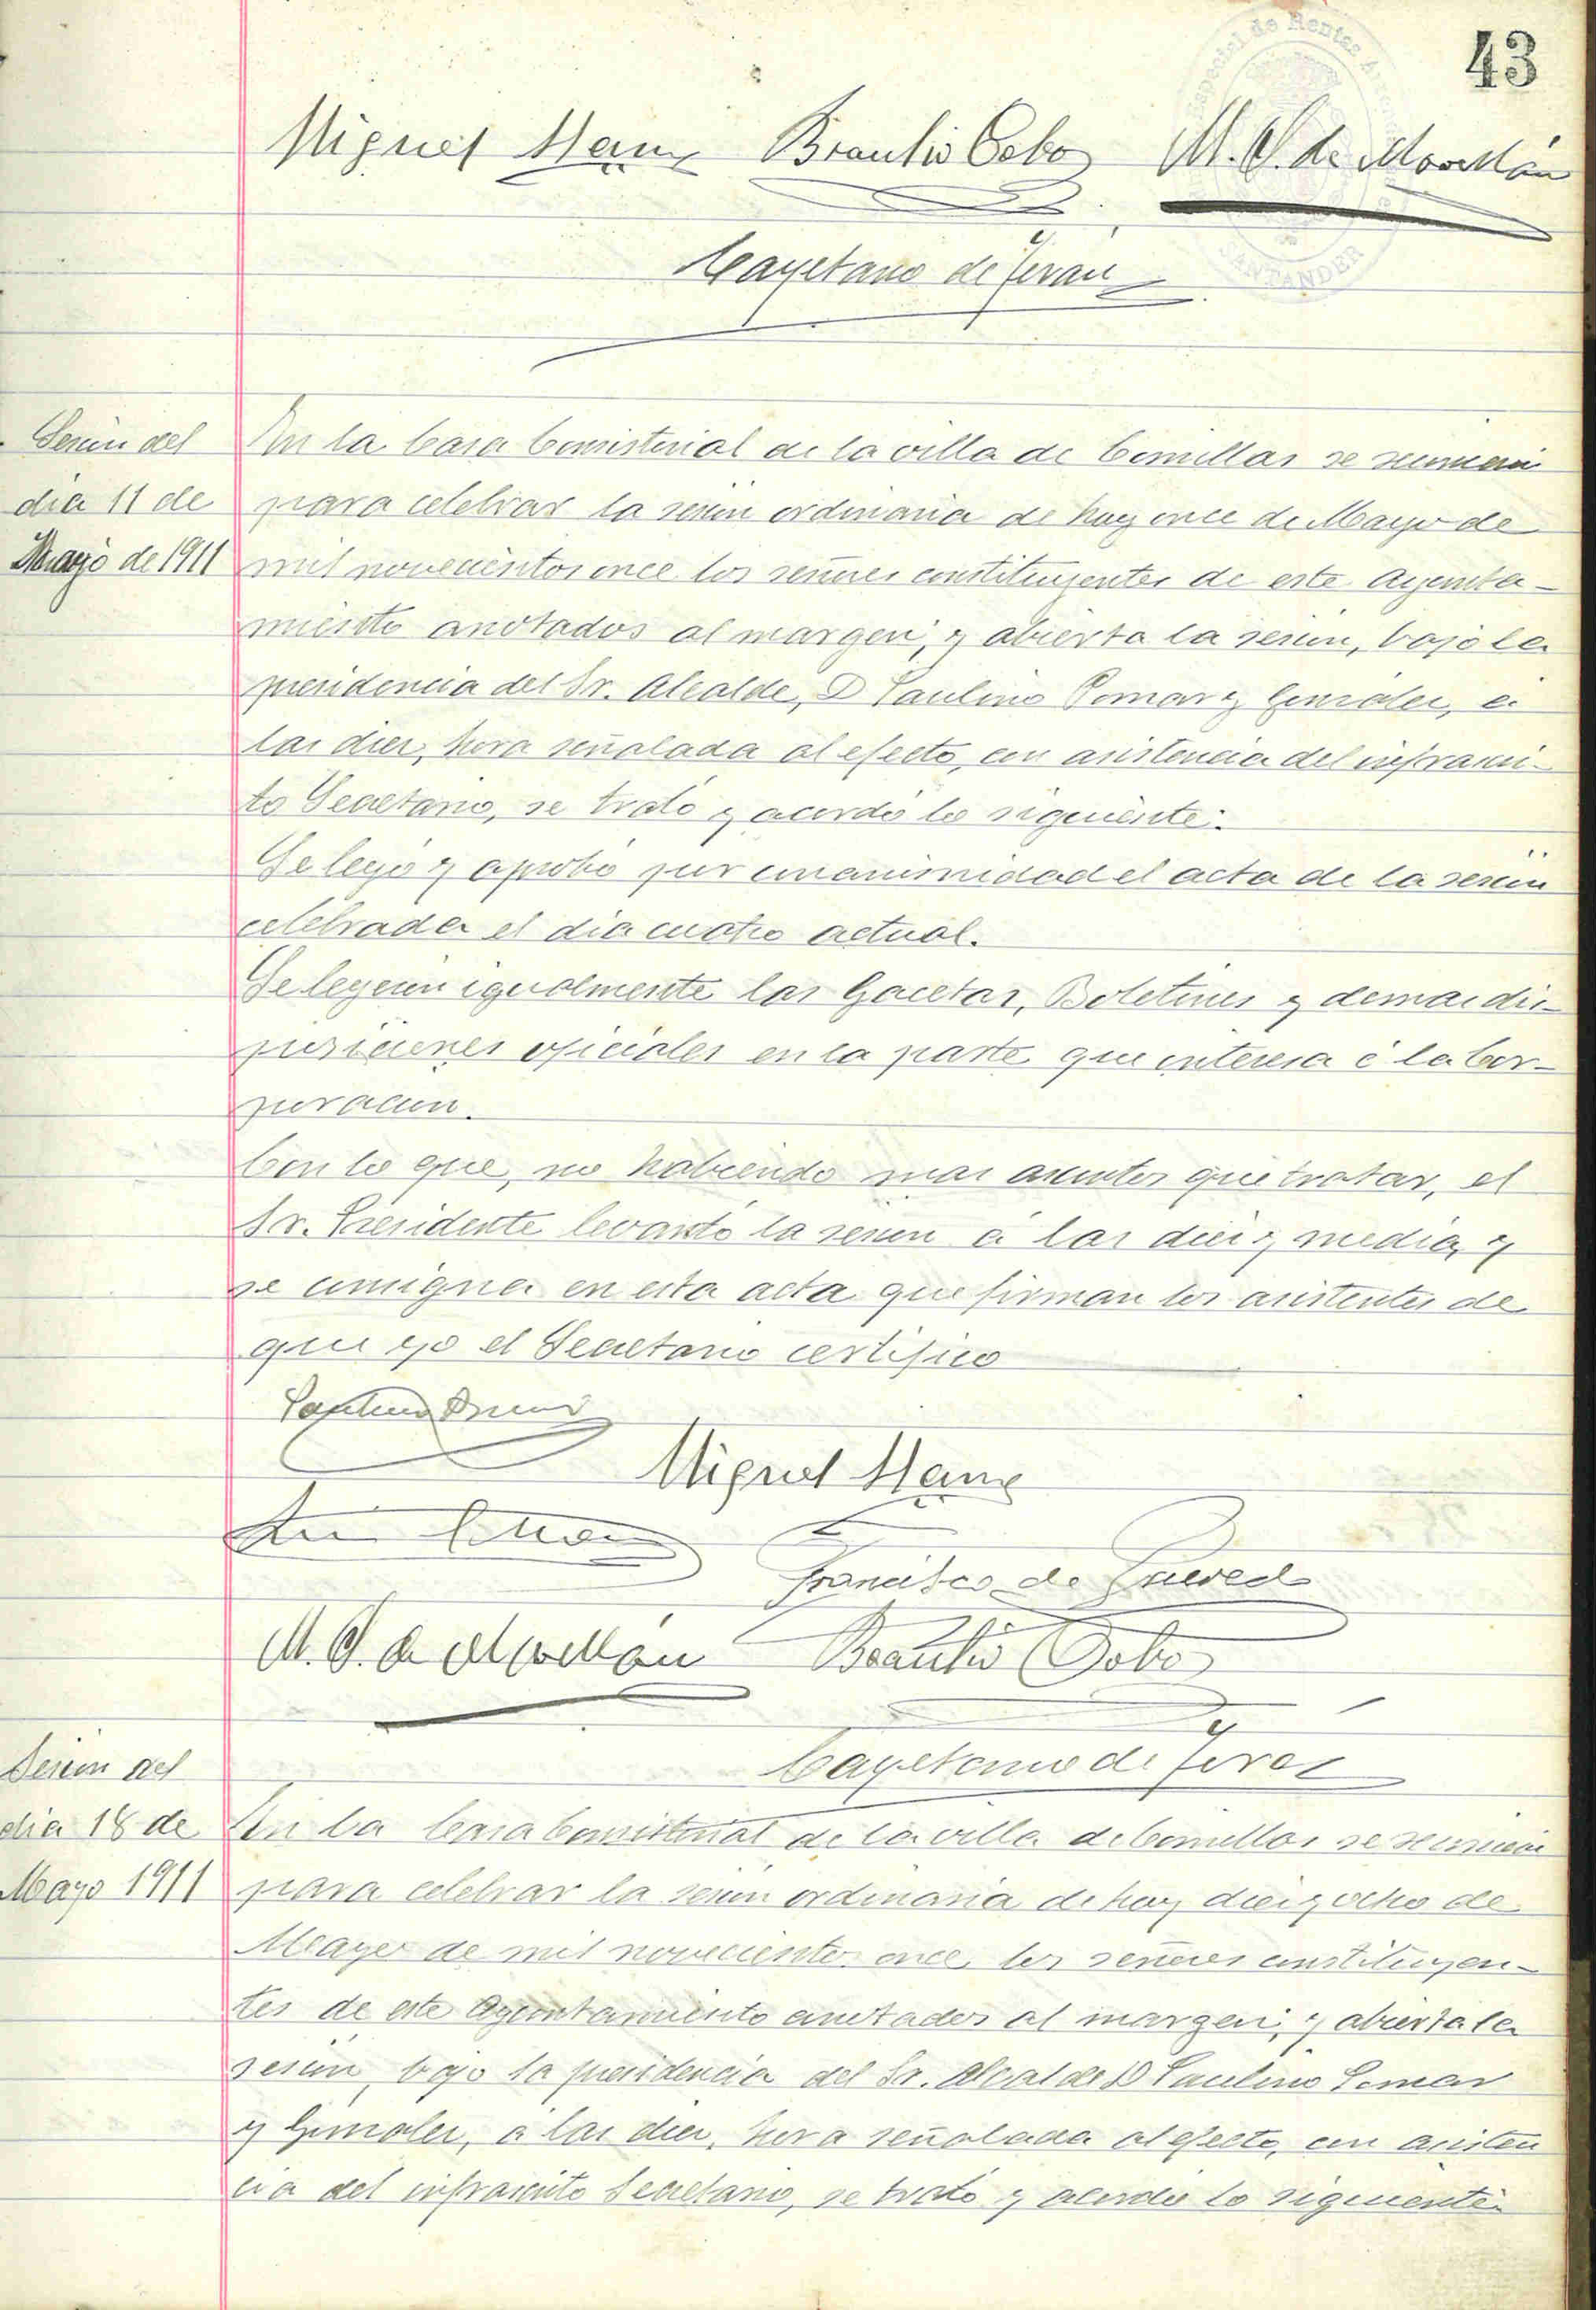 43
Especial de Rentas
SANTANDER
Miguel Braulio Cobo M. S. de Movellán
Cayetano de Terán
Sesión del
día 11 de
Mayo de 1911
En la Casa Consistorial de la villa de Comillas se reunieron
para celebrar la sesión ordinaria de hoy once de Mayo de
mil novecientos once los señores constituyentes de este Ayunta-
miento anotados al margen; y abierta la sesión, bajo la
presidencia del Sr. Alcalde, D Paulino Pomar y González, á
las diez, hora señalada al efecto, con asistencia del infrascri-
to Secretario, se trató y acordó lo siguiente:
Se leyó y aprobó por unanimidad el acta de la sesión
celebrada el día cuatro actual.
Se leyeron igualmente las Gacetas, Boletines y demas dis-
posiciones oficiales en la parte que interesa á la Cor-
poración.
Con lo que, no habiendo mas asuntos que tratar, el
Sr. Presidente levantó la sesión á las diez y media, y
se consigna en esta acta que firman los asistentes de
que yo el Secretario certifico
Miguel
Francisco de Quevedo
M. S. de Movellán Braulio Cobo
Cayetano de Terán
Sesión del
día 18 de
Mayo 1911
En la Casa Consistorial de la villa de Comillas se reunieron
para celebrar la sesión ordinaria de hoy diez y ocho de
Mayo de mil novecientos once los señores constituyen-
tes de este Ayuntamiento anotados al margen; y abierta la
sesión, bajo la presidencia del Sr. Alcalde D Paulino Pomar
y González, á las diez, hora señalada al efecto, con asisten
cia del infrascrito Secretario, se trató y acordó lo siguiente: